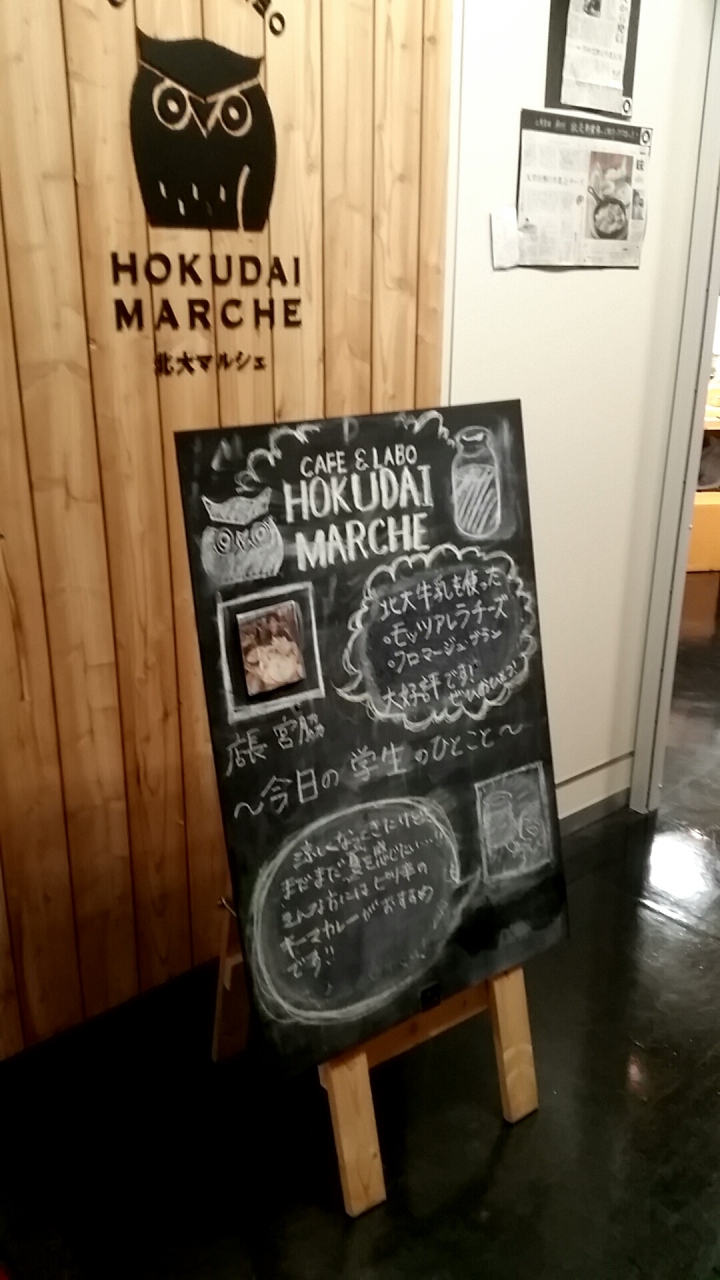 HOKUDAI
MARCHE
北大マルシェ
CAFE & LABO
HOKUDAI
MARCHE
北大牛乳を使った
・モッツアレラチーズ
・フロマージュブラン
大好評です!
ぜひおひとつ!
店長 宮脇
〜今日の学生のひとこと〜
涼しくなってきたけど
まだまだ夏を感じたい…!!
そんな方にはピリ辛の
キーマカレーがおすすめ
です!!